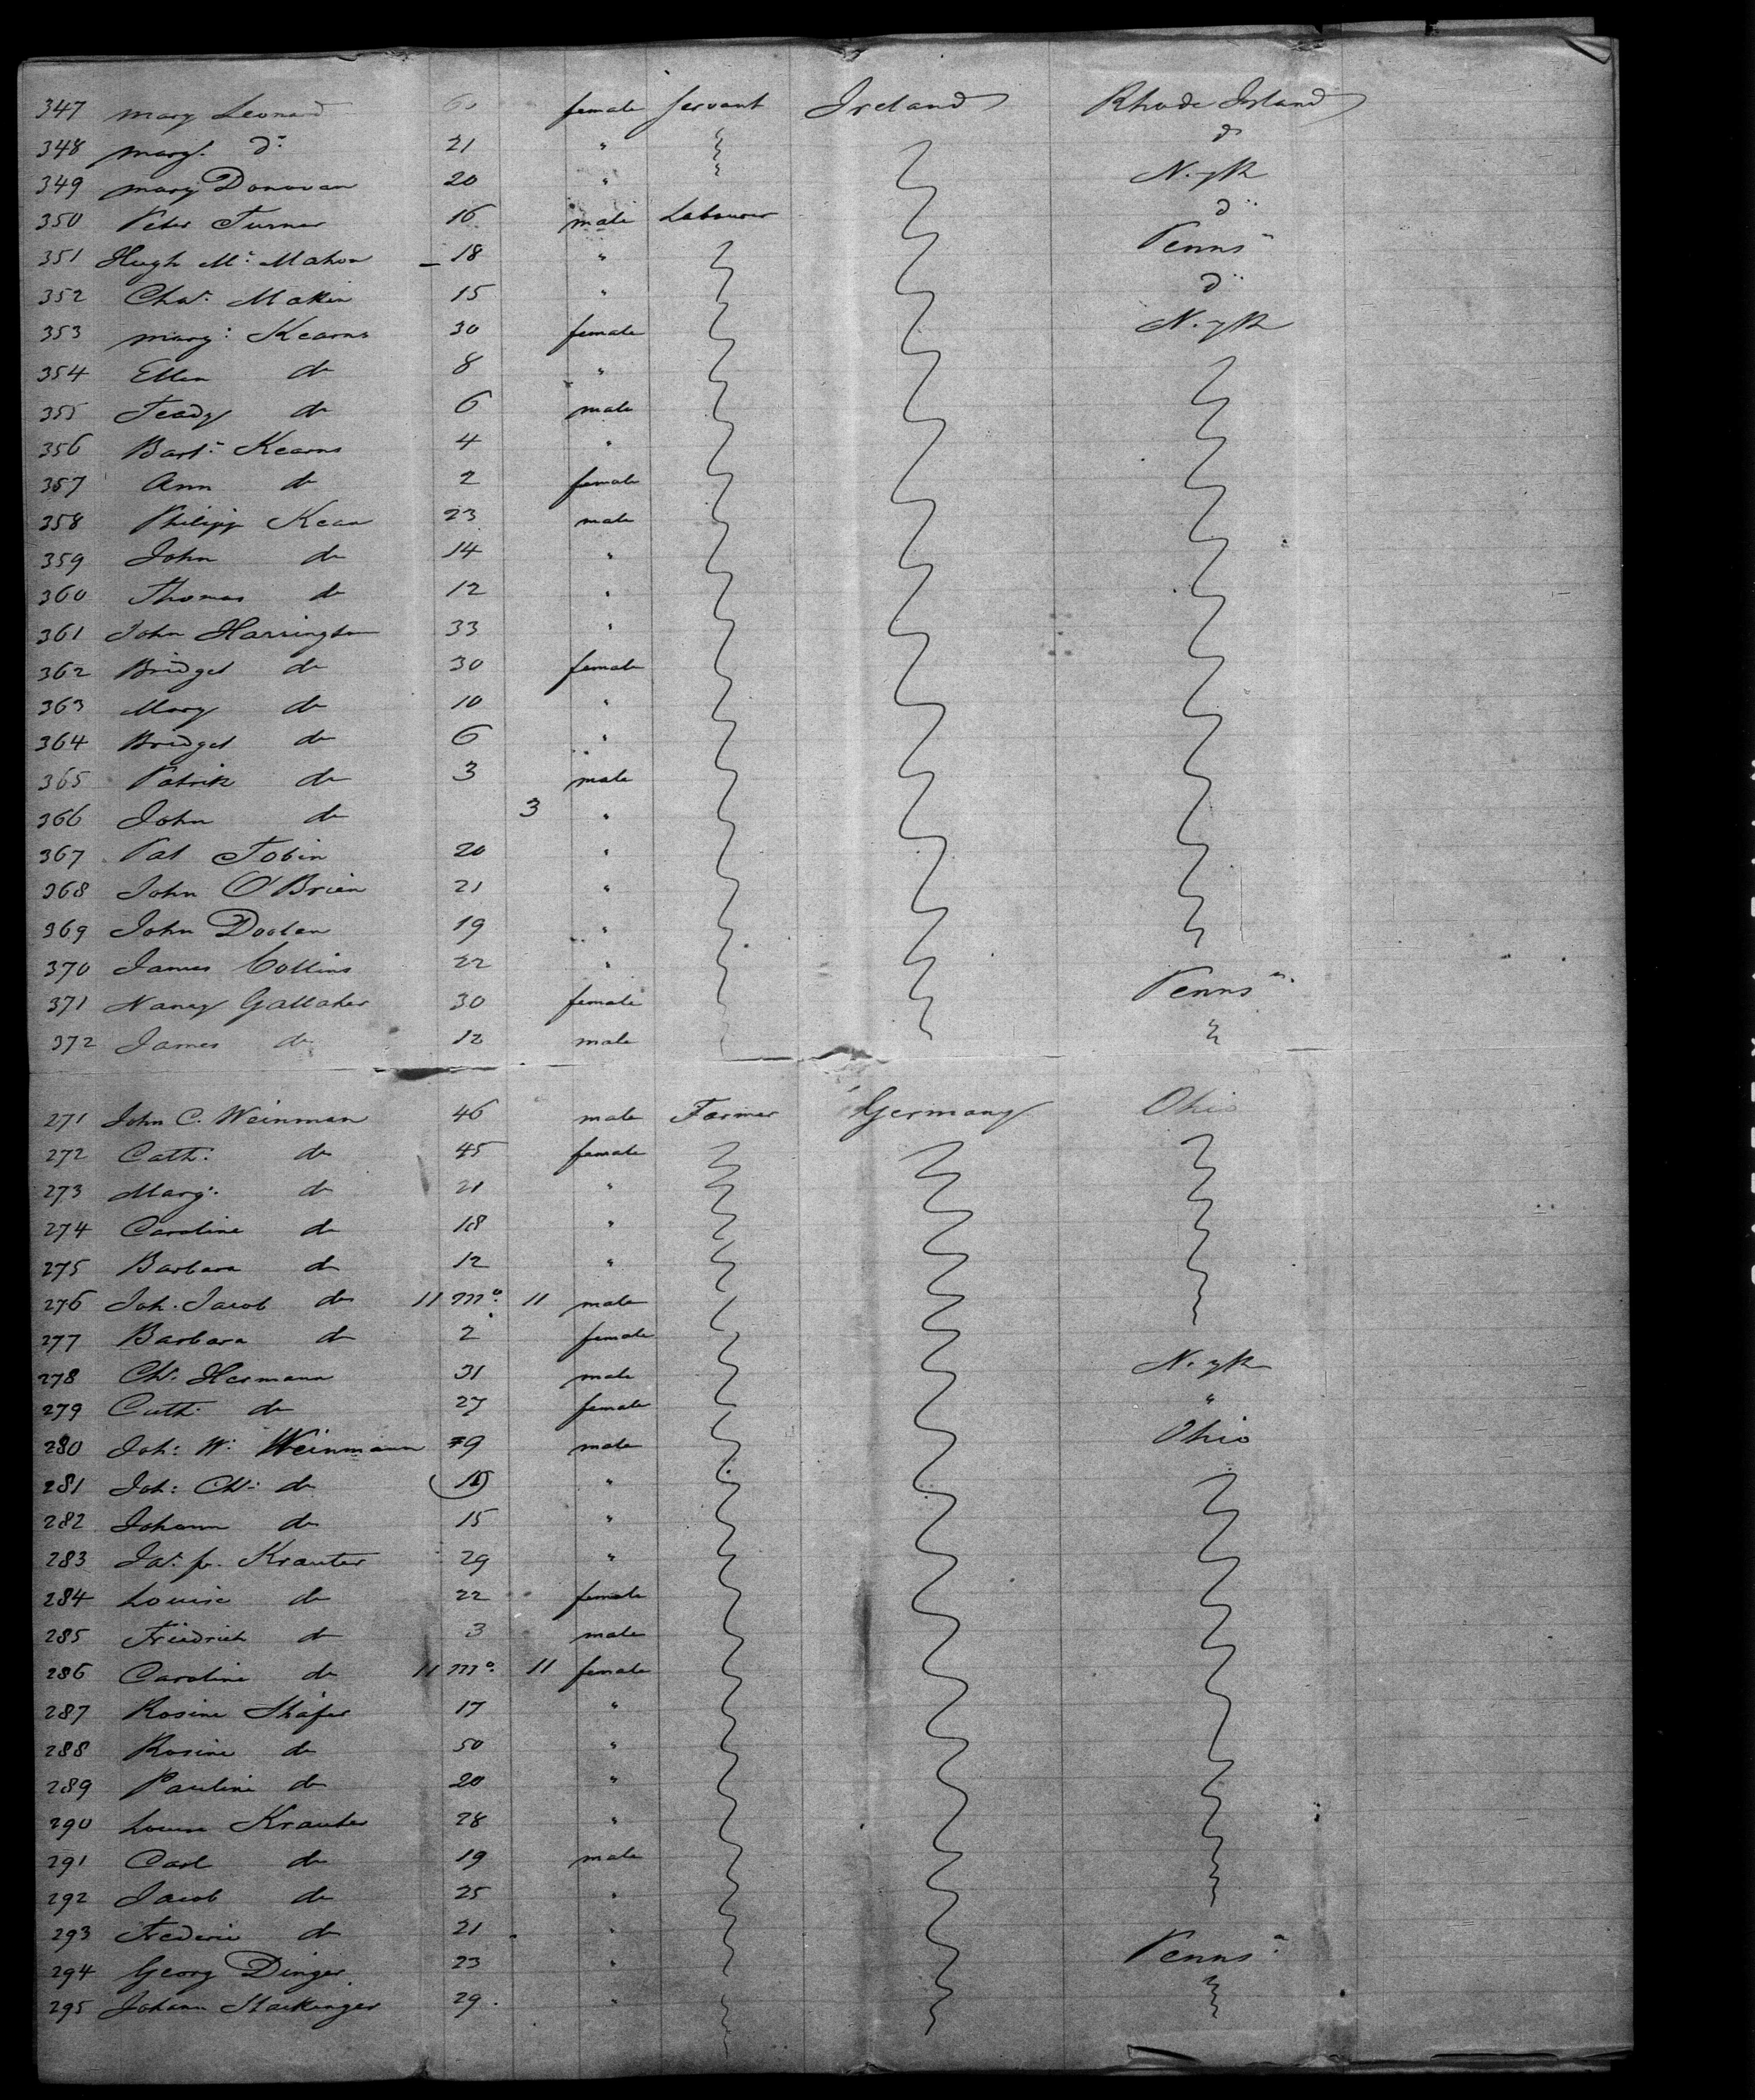 347 Mary Leonard 60 female Servant Ireland Rhode Island
348 Marg.t do 21 " do
349 Mary Donovan 20 " N. Yk
350 Peter Turner 16 male Labourer do
351 Hugh Mc Mahon 18 " Penns.a
352 Chas. Makin 15 " do
353 Marg: Kearns 30 female N. Yk
354 Ellen do 8 "
355 Teady do 6 male
356 Bart: Kearns 4 "
357 Ann do 2 female
358 Philipp Kean 23 male
359 John do 14 "
360 Thomas do 12 "
361 John Harrington 33 "
362 Bridget do 30 female
363 Mary do 10 "
364 Bridget do 6 "
365 Patrik do 3 male
366 John do 3 "
367 Pat Tobin 20 "
368 John O'Brien 21 "
369 John Doolan 19 "
370 James Collins 22 "
371 Nancy Gallaher 30 female Penns.a
372 James do 12 male
271 John C. Weinman 46 male Farmer Germany Ohio
272 Cath: do 45 female
273 Marg: do 21 "
274 Caroline do 18 "
275 Barbara do 12 "
276 Joh. Jacob do 11 mo. 11 male
277 Barbara do 2 female
278 Ch. Hermann 31 male N. Yk
279 Cath: do 27 female "
280 Joh: W: Weinmann 9 male Ohio
281 Joh: Ch: do "
282 Johann do 15 "
283 Krauter 29 "
284 Louise do 22 female
285 Friedrich do 3 male
286 Caroline do 11 mo. 11 female
287 Rosine Shäfer 17 "
288 Rosine do 50 "
289 Pauline do 20 "
290 Louise Krauter 28 "
291 Carl do 19 male
292 Jacob do 25 "
293 Frederic do 21 "
294 Georg Dinger 23 " Penns.a
295 Johann 29 "